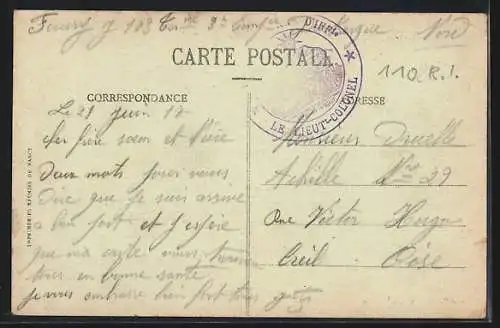 CARTE POSTALE
D'INFIE
LE LIEUT-COLONEL
110 R.I.
CORRESPONDANCE
ADRESSE
Le 21 juin 17
cher frère sœur et
Deux mots pour vous
Dire que je suis arrivé
à bon port et j espère
que ma carte vous trouvera
tous en bonne santé
je vous embrasse bien fort tous
Monsieur Druelle
Achille No 29
Rue Victor Hugo
Creil Oise
IMPRIMERIES RÉUNIES DE NANCY